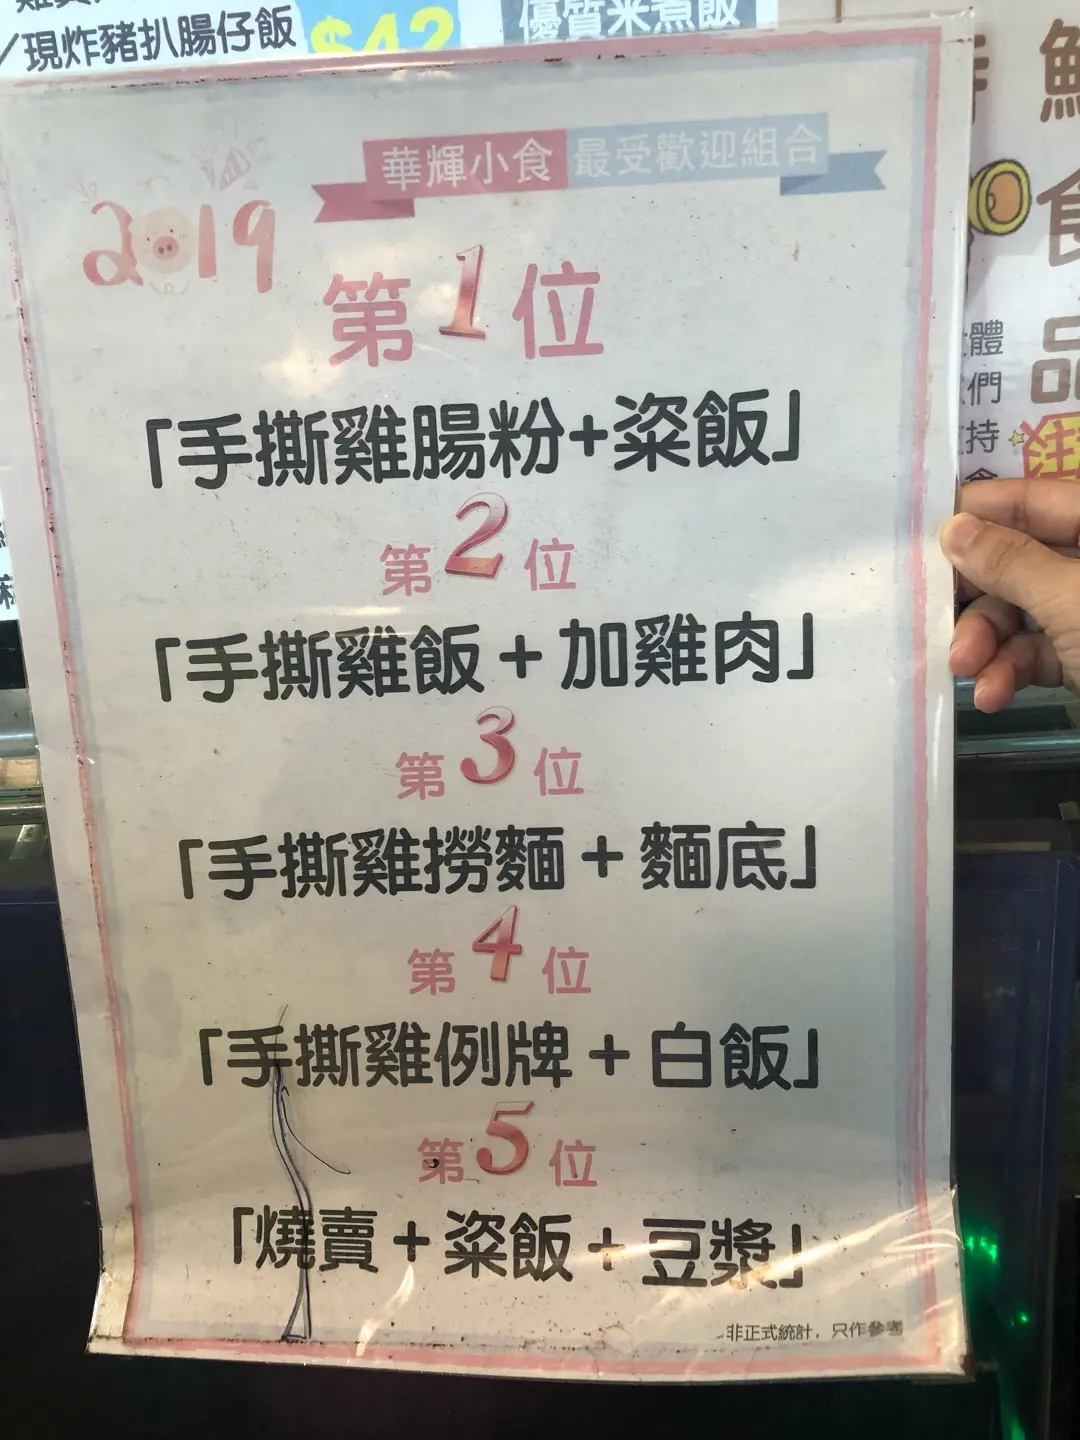 ／現炸豬扒腸仔飯
$42
優質米煮飯
華輝小食 最受歡迎組合
2019
第1位
「手撕雞腸粉+粢飯」
第2位
「手撕雞飯+加雞肉」
第3位
「手撕雞撈麵+麵底」
第4位
「手撕雞例牌+白飯」
第5位
「燒賣+粢飯+豆漿」
非正式統計，只作參考
食
品
體
們
持
注